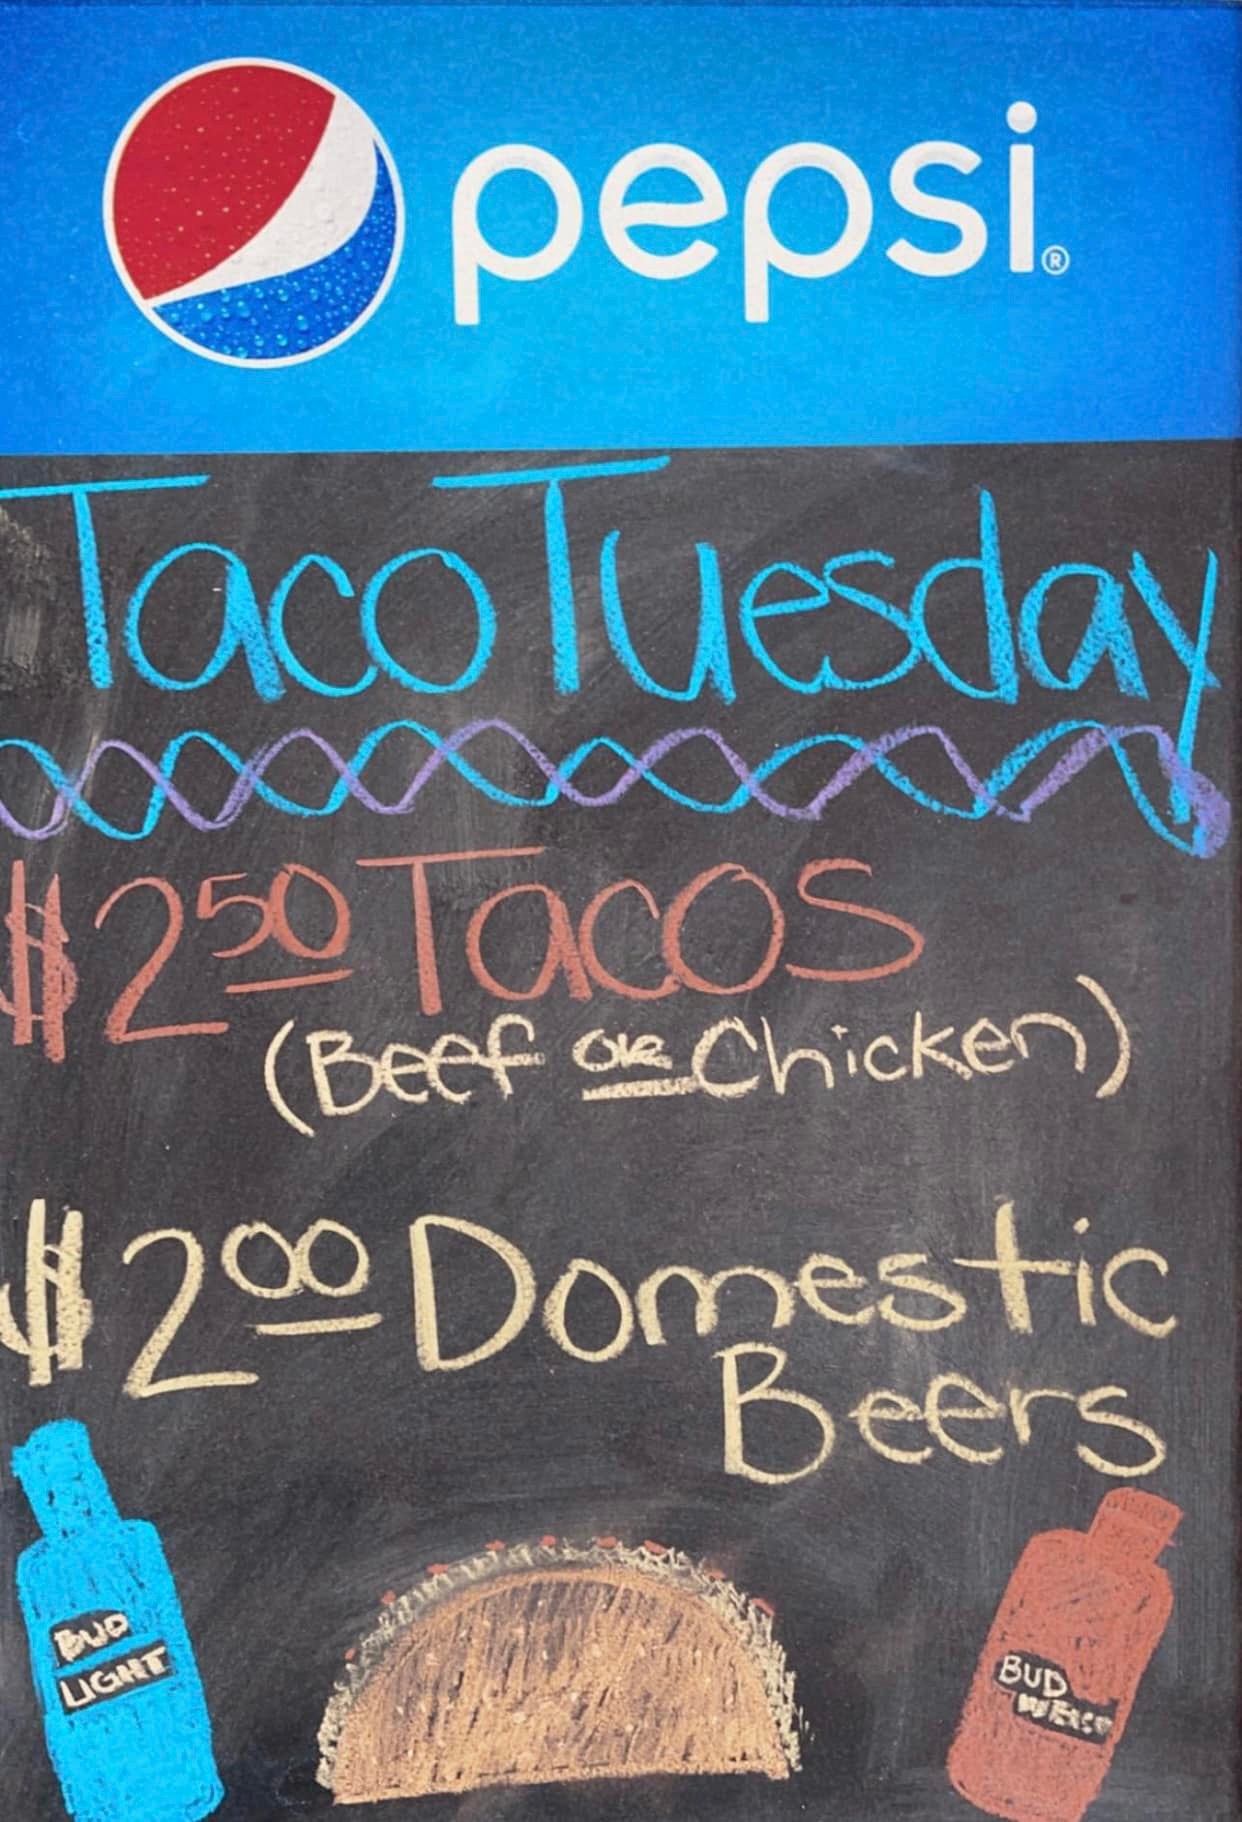 pepsi®
Taco Tuesday
$2.50 Tacos
(Beef or Chicken)
$2.00 Domestic
Beers
BUD
LIGHT
BUD
WEISER